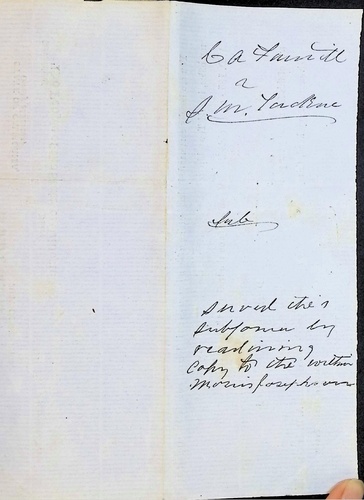 C A Farwell
v
J. M. Jackson
Sub.
served this
subpoena by
readining
copy to the within
Morris Josephson